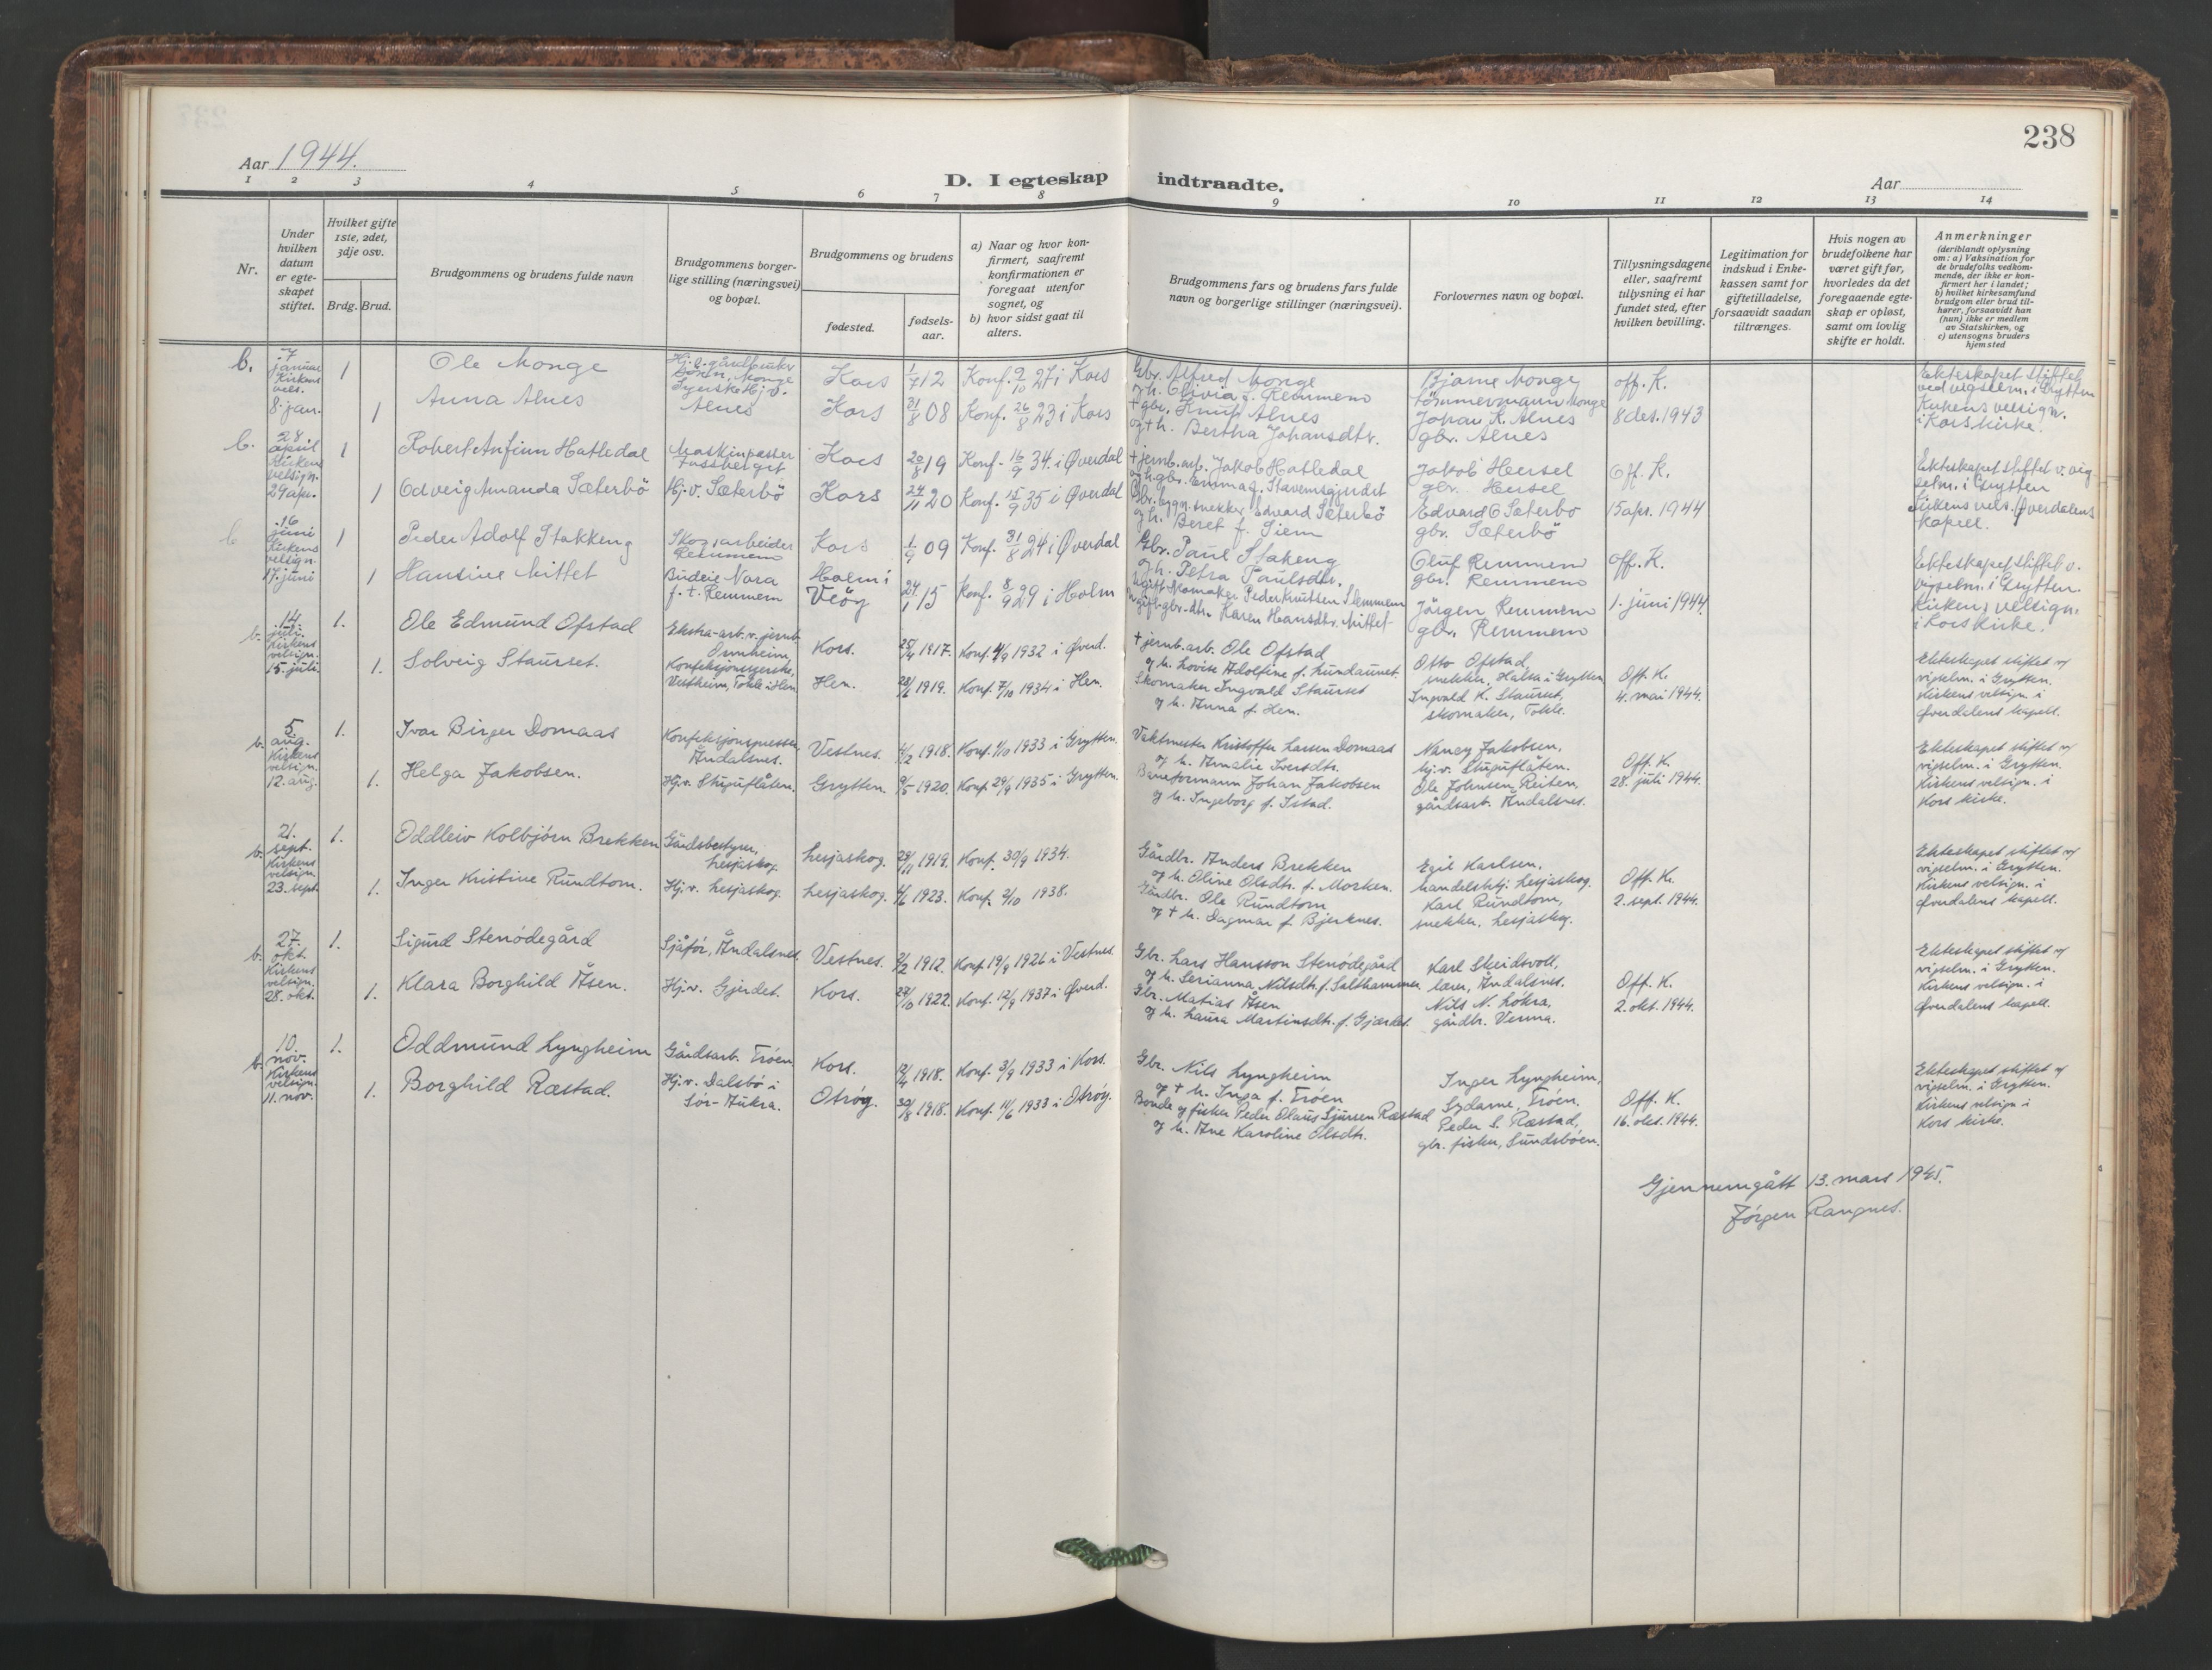 238
Aar 1944.
D. I egteskap indtraadte.
Aar
1 2 3 4 5 6 7 8 9 10 11 12 13 14
Nr.
Under hvilken datum er egte-skapet stiftet.
Hvilket gifte 1ste, 2det, 3dje osv.
Brdg. Brud.
Brudgommens og brudens fulde navn
Brudgommens borger-lige stilling (næringsvei) og bopæl.
Brudgommens og brudens
fødested.
fødsels-aar.
a) Naar og hvor kon-firmert, saafremt konfirmationen er foregaat utenfor sognet, og
b) hvor sidst gaat til alters.
Brudgommens fars og brudens fars fulde navn og borgerlige stillinger (næringsvei).
Forlovernes navn og bopæl.
Tillysningsdagene eller, saafremt tillysning ei har fundet sted, efter hvilken bevilling.
Legitimation for indskud i Enke-kassen samt for giftetilladelse, forsaavidt saadan tiltrænges.
Hvis nogen av brudefolkene har været gift før, hvorledes da det foregaaende egte-skap er opløst, samt om lovlig skifte er holdt.
Anmerkninger
(deriblandt oplysning om: a) Vaksination for de brudefolks vedkom-mende, der ikke er kon-firmert her i landet; b) hvilket kirkesamfund brudgom eller brud til-hører, forsaavidt han (hun) ikke er medlem av Statskirken, og c) utensogns bruders hjemsted
b. 7 januar Kirkens vels. 8. jan.
1 Ole Monge
Kors 1/7 12 Konf. 9/10 27 i Kors
Gbr. Alfred Monge
og h. Olivia f. Remmem
Bjarne Monge
tömmermann Monge
off. K.
8 des. 1943
Ekteskapet stiftet
ved vigselm. i Grytten
Kirkens velsign.
i Kors kirke.
1 Anna Alnes
Alnes
Kors 31/8 08 Konf. 26/8 23 i Kors
+ gbr. Knut Alnes
og + h. Bertha Johansdtr.
Johan K. Alnes
gbr. Alnes
b. 28. april Kirkens velsign. 29 apr.
1 Robert Anfinn Hatledal
Maskinpasser
Fossberget
Kors 20/8 19 Konf. 16/9 34. i Øverdal
+ jernb.arb. Jakob Hatledal
Jakob Hersel
gbr. Hersel
Off. K.
15 apr. 1944
Ekteskapet stiftet v. vig
selm. i Grytten
Kirkens vels. i Øverdalens
kapell.
1 Odveig Amanda Sæterbö
Hj.v. Sæterbö
Kors 24/11 20 Konf. 15/9 35 i Øverdal
og h. Beret f. Siem
Edvard O Sæterbö
gbr. Sæterbö
b 16 juni Kirkens velsign. 17. juni
1 Peder Adolf Stakkeng
Skogsarbeider
Remmem
Kors 1/9 09 Konf. 31/8 24 i Øverdal
Gbr. Paul Stakeng
og h. Petra Paulsdtr.
Oluf Remmem
gbr. Remmem
off. K.
1. juni 1944.
Ekteskapet stiftet v.
vigselm. i Grytten.
Kirkens velsign.
i Kors kirke.
1 Hansine Mittet
Budeie Nora
f. t. Remmem
Holm i
Veöy
24/1 15 Konf. 8/9 29 i Holm
Ugift skomaker Peder Knutsen Slemmem
ugift gbr.-dtr. Karen Hansdtr. Mittet
Jörgen Remmem
gbr. Remmem
b. 14. juli. Kirkens velsign. 15. juli.
1. Ole Edmund Ofstad
Ekstra-arb. v. jernb.
Ormheim
Kors. 25/4 1917. Konf. 4/9 1932 i Øverd.
+ jernb.arb. Ole Ofstad
og h. Lovise Adolfine f. Lundaunet.
Otto Ofstad,
snekker, Halsa i Grytten
Off. K.
4. mai 1944.
Ekteskapet stiftet v/
vigselm. i Grytten.
Kirkens velsign. i
Øverdalens kapell.
1. Solveig Staurset.
Konfeksjonssyerske,
Vestheim, Tokle i Hen
Hen. 28/6 1919. Konf. 7/10 1934 i Hen.
Skomaker Ingvald Staurset
og h. Anna f. Hen.
Ingvald K. Staurset,
skomaker, Tokle.
b. 5. aug. Kirkens velsign. 12. aug.
1. Ivar Birger Domaas
Konfeksjonspresser,
Åndalsnes.
Vestnes. 4/2 1918. Konf. 1/10 1933 i Grytten.
Vaktmester Kristoffer Larsen Domaas
og h. Amalie Iversdtr.
Nancy Jakobsen,
hj.v. Stuguflåten.
Off. K.
28. juli 1944.
Ekteskapet stiftet v/
vigselm. i Grytten.
Kirkens velsign. i
Kors kirke.
1. Helga Jakobsen.
Hj.v. Stuguflåten.
Grytten. 9/5 1920. Konf. 29/9 1935 i Grytten.
Baneformann Johan Jakobsen
og h. Ingeborg f. Istad.
Ole Johnsen Reiten,
gårdsarb. Åndalsnes.
b. 21. sept. Kirkens velsign. 23. sept.
1. Oddleiv Kolbjörn Brekken
Gårdsbestyrer,
Lesjaskog.
Lesjaskog. 29/11 1919. Konf. 30/9 1934.
Gårdbr. Anders Brekken
og h. Oline Olsdtr. f. Morken.
Egil Karlsen,
handelsbtj. Lesjaskog.
Off. K.
2. sept. 1944.
Ekteskapet stiftet v/
vigselm. i Grytten.
Kirkens velsign. i
Øverdalens kapell.
1. Inger Kristine Rundtom.
Hj.v. Lesjaskog.
Lesjaskog. 4/6 1923. Konf. 2/10 1938.
Gårdbr. Ole Rundtom
og + h. Dagmar f. Bjerknes.
Karl Rundtom,
snekker, Lesjaskog.
b. 27. okt. Kirkens velsign. 28. okt.
1. Sigurd Stenödegård
Sjåför, Åndalsnes.
Vestnes. 2/2 1912. Konf. 19/9 1926 i Vestnes.
Gbr. Lars Hansson Stenödegård
og h. Serianna Nilsdtr. f. Salthammer
Karl Skeidsvoll,
lærer, Åndalsnes.
Off. K.
2. okt. 1944.
Ekteskapet stiftet v/
vigselm. i Grytten.
Kirkens velsign. i
Øverdalens kapell.
1. Klara Borghild Åsen.
Hj.v. Gjerdet.
Kors. 27/10 1922. Konf. 12/9 1937 i Øverd.
Gbr. Matias Åsen
og h. Laura Martinsdtr. f. Gjærdet.
Nils N. Lökra,
gårdbr. Verma.
b. 10. nov. Kirkens velsign. 11. nov.
1. Oddmund Lyngheim
Gårdsarb. Tröen
Kors. 12/4 1918. Konf. 3/9 1933 i Kors.
Gbr. Nils Lyngheim
og + h. Inga f. Tröen
Inger Lyngheim,
Sydame, Tröen.
Off. K.
16. okt. 1944.
Ekteskapet stiftet v/
vigselm. i Grytten.
Kirkens velsign i
Kors kirke.
1. Borghild Ræstad.
Hj.v. Dalsbö i
Sör-Aukra.
Otröy. 30/8 1918. Konf. 11/6 1933 i Otröy.
Bonde og fisker Peder Olaus Sjursen Ræstad
og h. Ane Karoline Olsdtr.
Peder S. Ræstad,
gbr. fisker, Sundsböen.
Gjennemgått 13. mars 1945.
Jörgen Rangnes.